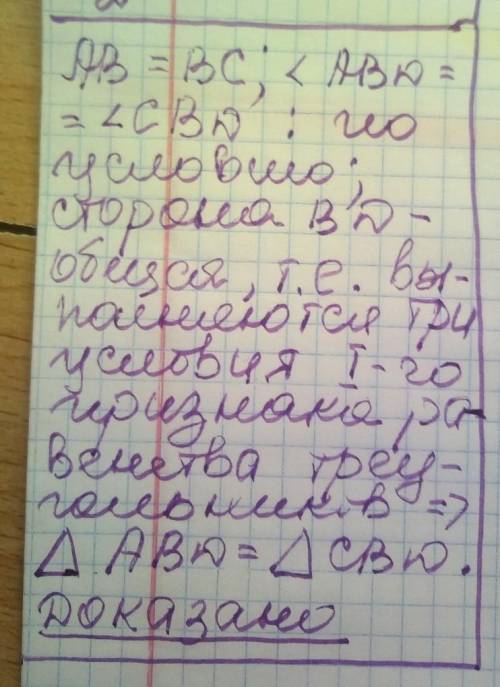 AB = BC; < ABD =
= <CBD : по
условию;
сторона BD -
общая, т.е. вы-
полняются три
условия I-го
признака ра
венства треу-
гольников =>
△ ABD = △ CBD.
Доказано